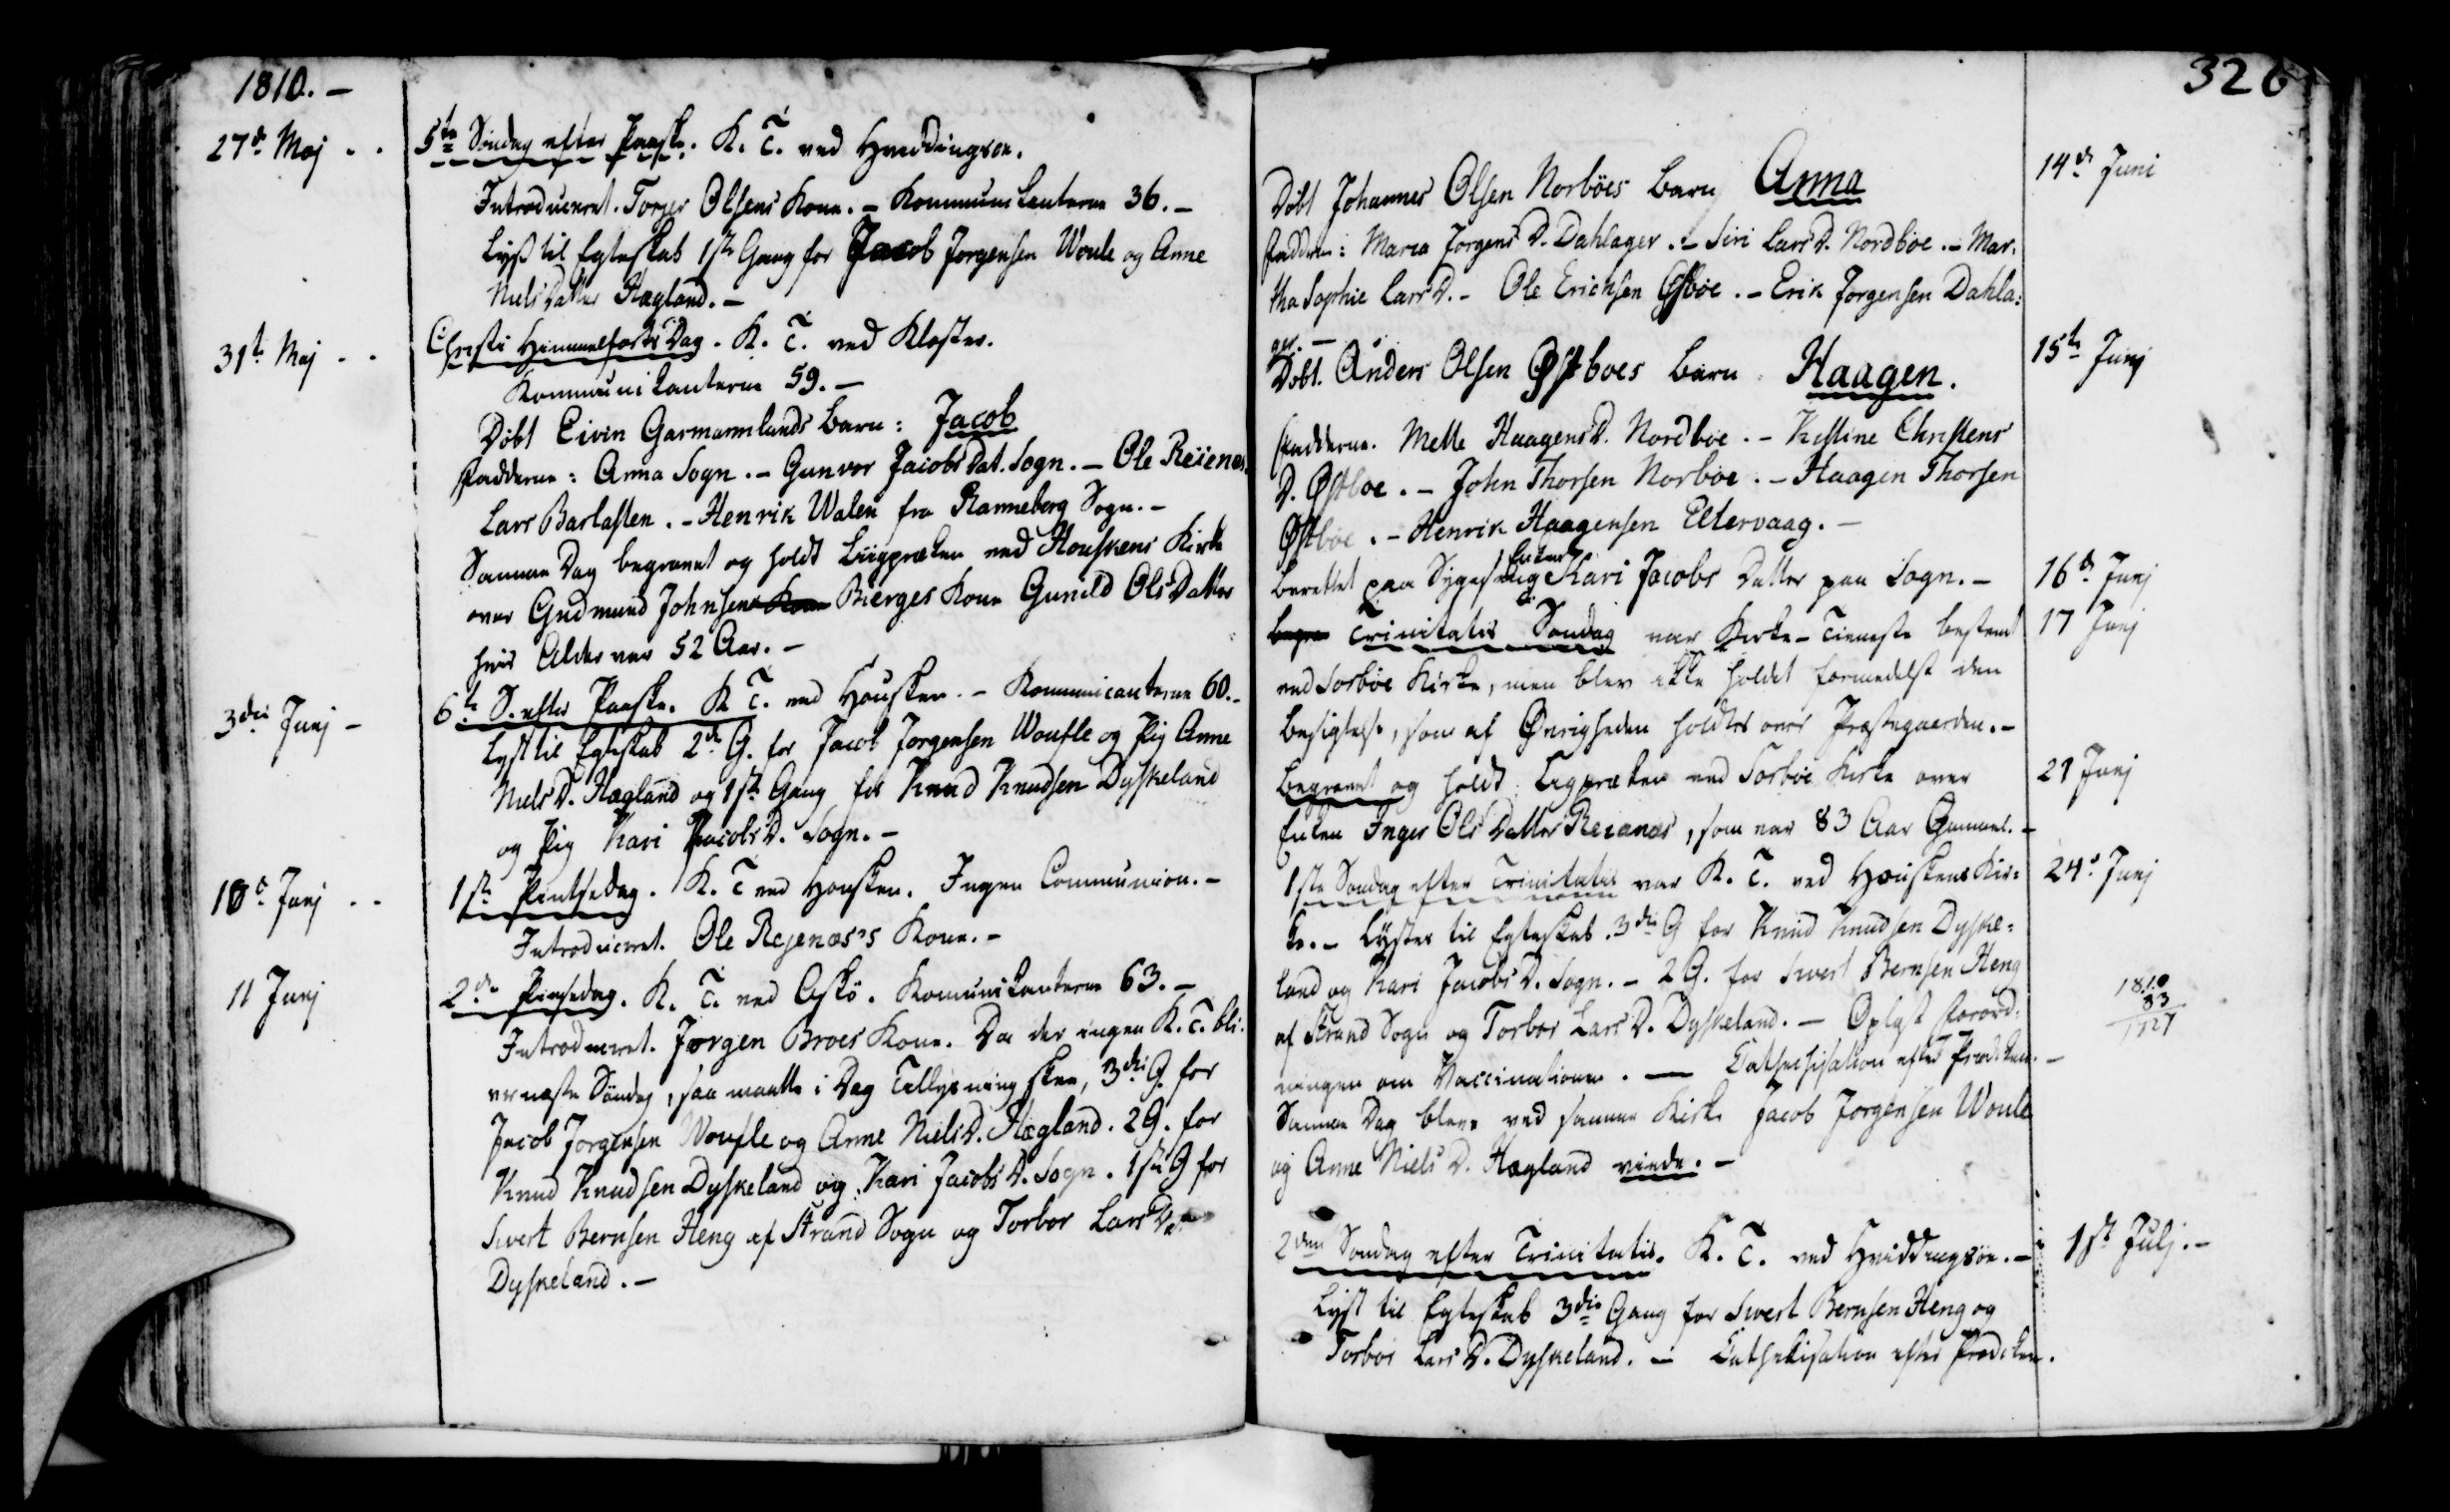 1810. –
27de Maj - -
5te Søndag efter Paaske. K. T. ved Hvidingsøe.
Introduceret. Torger Olsens Kone. – Kommunikanterne 36. –
Lyst til Egteskab 1ste Gang for Jacob Jorgensen Woule og Anne
Niels Datter Hagland. –
31te Maj - -
Christi Himmelfarts Dag. K. T. ved Kloster.
Kommunikanterne 59. –
Döbt Eivin Garmannlands Barn: Jacob
Fadderne: Anna Sogn. – Gunvor Jacobs Dat. Sogn. – Ole Reienes.
Lars Barlasten. – Henrik Walen fra Ranneberg Sogn. –
Samme Dag begravet og holdt Liigpræken ved Houskens Kirke
over Gudmund Johnsens Kone Bierges Kone Gunild Ols Datter
hvis Alder var 52 Aar. –
3die Junj –
6te S. efter Paaske. K T. ved Housken. – Kommunicanterne 60. –
Lyst til Egteskab 2de G. for Jacob Jorgensen Woufle og Pig Anne
Niels D. Hagland og 1ste Gang for Knud Knudsen Dyskeland
og Pig Kari Jacobs D. Sogn. –
10de Junj - -
1ste Pintsedag. K. T ved Housken. Ingen Communion. –
Introduceret. Ole Rejenæs's Kone. –
11 Junj
2den Pinsedag. K. T. ved Askö. Komunikanterne 63. –
Introduceret. Jørgen Broes Kone. Da der ingen K. T. bli:
ver næste Söndag, saa maatte i Dag Tillysning skee, 3die G. for
Jacob Jorgensen Woufle og Anne Niels D. Hægland. 2 G. for
Knud Knudsen Dyskeland og Kari Jacobs D. Sogn. 1ste G for
Sivert Bernsen Heng af Strand Sogn og Torbor Lars D.
Dyskeland. –
326
Döbt Johannes Olsen Norböes Barn Anna
14de Juni
Faddere: Maria Jorgens D. Dahlager. – Siri Lars D. Nordböe. – Mar:
tha Sophie Lars D. – Ole Erichsen Østböe. – Erik Jorgensen Dahla:
ger. –
Döbt. Anders Olsen Østboes Barn Haagen.
15te Junj
Fadderne. Mette Haagens D. Nordböe. – Kistine Christens
D. Østböe. – John Thorsen Norböe. – Haagen Thorsen
Østböe. – Henrik Haagensen Eltervaag. –
Enken
Berettet paa Sygeseng Kari Jacobs Datter paa Sogn. –
16de Junj
Trinitatis Søndag var Kirke-Tieneste bestemt
17 Junj
ved Sorböe Kirke, men blev ikke holdet formedelst den
Besigtelse, som af Øvrigheden holdtes over Præstegaarden. –
Begravet og holdt Ligpræken ved Sorböe Kirke over
21 Junj
Enken Inger Ols Datter Reianæs, som var 83 Aar Gammel. –
1ste Søndag efter Trinitatis var K. T. ved Houskens Kir:
24de Junj
ke. – Lystes til Egteskab 3die G for Knud Knudsen Dyske:
land og Kari Jacobs D. Sogn. – 2 G. for Sivert Bernsen Heng
af Strand Sogn og Torbor Lars D. Dyskeland. – Oplæst Forord:
1810
83
1727
ningen om Vaccinationen. — Cathechisation efter Prædiken. –
Samme Dag bleve ved samme Kirke Jacob Jorgensen Woule
og Anne Niels D. Hægland viede. –
2den Søndag efter Trinitatis. K. T. ved Hviddingsöe. –
1ste Julj. –
Lyst til Egteskab 3die Gang for Sivert Bernsen Heng og
Torbor Lars D. Dyskeland. – Cathekisation efter Prædiken.